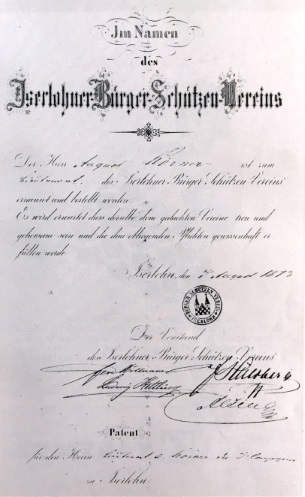 Im Namen
des
Iserlohner-Bürger-Schützen-Vereins
Der Herr August Körner ist zum
Lieutenant des Iserlohner Bürger Schützen Vereins
ernannt und bestellt worden
Es wird erwartet dass derselbe dem gedachten Vereine treu und
gehorsam sein und die ihm obliegenden Pflichten gewissenhaft er
füllen werde
Iserlohn, den August
Der Vorstand
des Iserlohner Bürger Schützen Vereins
Patent
für den Herrn Lieutenant Körner der Compagnie
zu Iserlohn